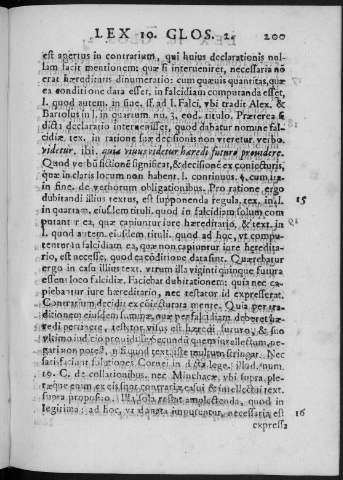 LEX 10. GLOS. 2. 200
est apertus in contrarium, qui huius declarationis nul-
lam facit mentionem: quæ si interueniret, necessaria nõ
erat hæreditaris dinumeratio: cum quæuis quantitas, quæ
ea conditione data esset, in falcidiam computanda esset,
l. quod autem. in fine. ff. ad l. Falci, vbi tradit Alex. &
Bartolus in l. in quartam. nu. 3. eod. titulo. Præterea si
dicta declaratio interuenisset, quod dabatur nomine fal-
cidiæ. tex. in ratione suæ decisionis non vteretur verbo.
videtur. ibi. quia viuus videtur hæredi futuro prouidere.
Quod verbũ fictionẽ significat, & decisionẽ ex coniecturis,
quæ in claris locum non habent. l. continuus. §. cum ita.
in fine. de verborum obligationibus. Pro ratione ergo
dubitandi illius textus, est supponenda regula. tex. in l. 15
in quartam. eiusdem tituli. quod in falcidiam solum com
putantur ea, quæ capiuntur iure hæreditario, & text. in
l. quod autem. eiusdem. tituli. quod ad hoc, vt compu-
tentur in falcidiam ea, quæ non capiuntur iure heredita-
rio, est necesse, quod ea cõditione data sint. Quærebatur
ergo in casu illius text. vtrum illa viginti quinque futura
essent loco falcidiæ. Faciebat dubitationem: quia nec ca-
piebantur iure hæreditario, nec testator id expresserat.
Contrarium decidit ex coniecturata mente. Quia per tra-
ditionem eiusdem summæ, quæ per falcidiam deberet hæ-
redi pertinere, testator visus est hæredi futuro, & suo
vltimo iudicio prouidisse: secundũ quem intellectum, ne-
gari non potest, quod text. iste multum stringat. Nec
satisfaciunt solutiones Cornei in dicta lege. illud. num.
19. C. de collationibus. nec Minchacæ vbi supra. ple-
ræque enim ex eis sunt contrariæ casui & intellectui text.
supra proposito. Illa sola restat amplectenda, quod in
legitima: ad hoc, vt donata imputentur, necessaria est 16
expressa